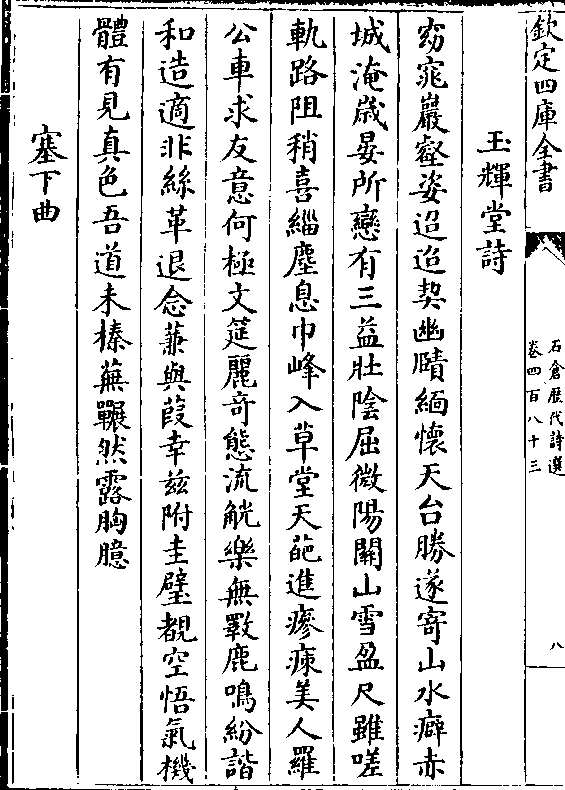 欽定四庫全書
石倉歷代詩選
卷四百八十三
八
玉輝堂詩
窈窕巖壑姿迢迢契幽賾緬懷天台勝遂寄山水癖赤
城淹歲晏所戀有三益壯陰屈微陽關山雪盈尺雖嗟
軌路阻稍喜緇塵息巾峰入草堂天葩進瘮㾕美人羅
公車求友意何極文筵麗奇態流觥樂無斁鹿鳴紛諧
和造適非絲革退念蒹與葭幸兹附圭璧覩空悟氣機
體有見真色吾道未榛蕪囅然露胸臆
塞下曲